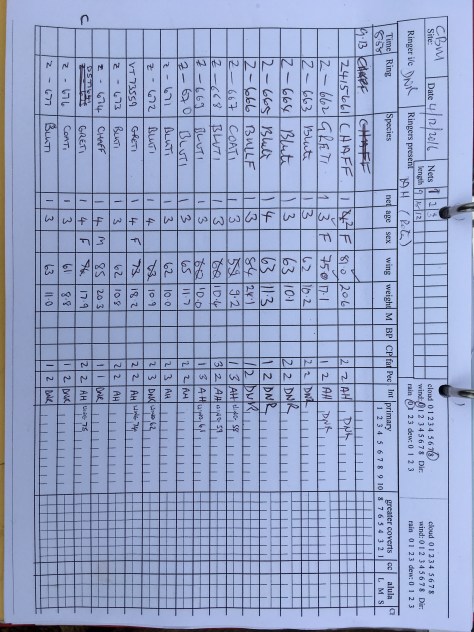 Site: CBM Date 4/12/2016 Nets 1 2 3
length 9 12 12
cloud 0 1 2 3 4 5 6 7 8
wind: 0 1 2 3 4 5 6 7 8 Dir:
rain 0 1 2 3 dew: 0 1 2 3
cloud 0 1 2 3 4 5 6 7 8
wind: 0 1 2 3 4 5 6 7 8 Dir:
rain 0 1 2 3 dew: 0 1 2 3
Ringer i/c DNR Ringers present AH
Time Ring Species net age sex wing weight M BP CP fat Pec Int primary greater coverts cc alula
1 2 3 4 5 6 7 8 9 10 8 7 6 5 4 3 2 1 L M S
Z415661 CHAFF 1 F 20.6 2 2 AH DNR
Z - 662 GRETI 1 3 F 17.1 1 2 AH DNR
Z - 663 Bluti 1 3 62 10.2 2 2 DNR
Z - 664 Bluti 1 3 63 10.1 2 2 DNR
Z - 665 Bluti 1 4 63 11.3 1 2 DNR
Z - 666 BULLF 1 3 84 1 2 DNR
Z - 667 COATI 1 3 9.2 1 3 AH
Z - 668 BLUTI 1 3 10.4 3 2 AH
Z - 669 BLUTI 1 3 10.0 1 3 AH
Z - 670 BLUTI 1 3 65 11.7 2 2 AH
Z - 671 BLUTI 1 3 62 10.0 2 3 AH
Z - 672 BLUTI 1 4 10.9 2 3 DNR
VT73559 GRETI 1 4 F 18.2 2 2 AH
Z - 673 BLUTI 1 3 62 10.8 2 2 AH
Z - 674 CHAFF 1 4 M 85 20.3 1 1 DNR
C GRETI 1 4 F 17.9 2 2 AH
Z - 676 COATI 1 3 61 8.8 1 2 DNR
Z - 677 BLUTI 1 3 63 11.0 1 2 DNR